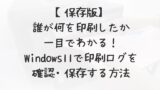 【保存版】
誰が何を印刷したか
一目でわかる！
Windows11で印刷ログを
確認・保存する方法